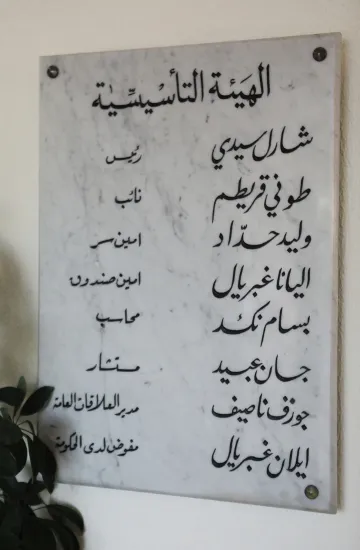 الهيئة التأسيسية
شارل سيدي رئيس
طوني قريطم نائب
وليد حدّاد امين سر
اليانا غبريال امين صندوق
بسام نكد محاسب
جان عبيد مستشار
جوزف ناصيف مدير العلاقات العامة
ايلان غبريال مفوض لدى الحكومة